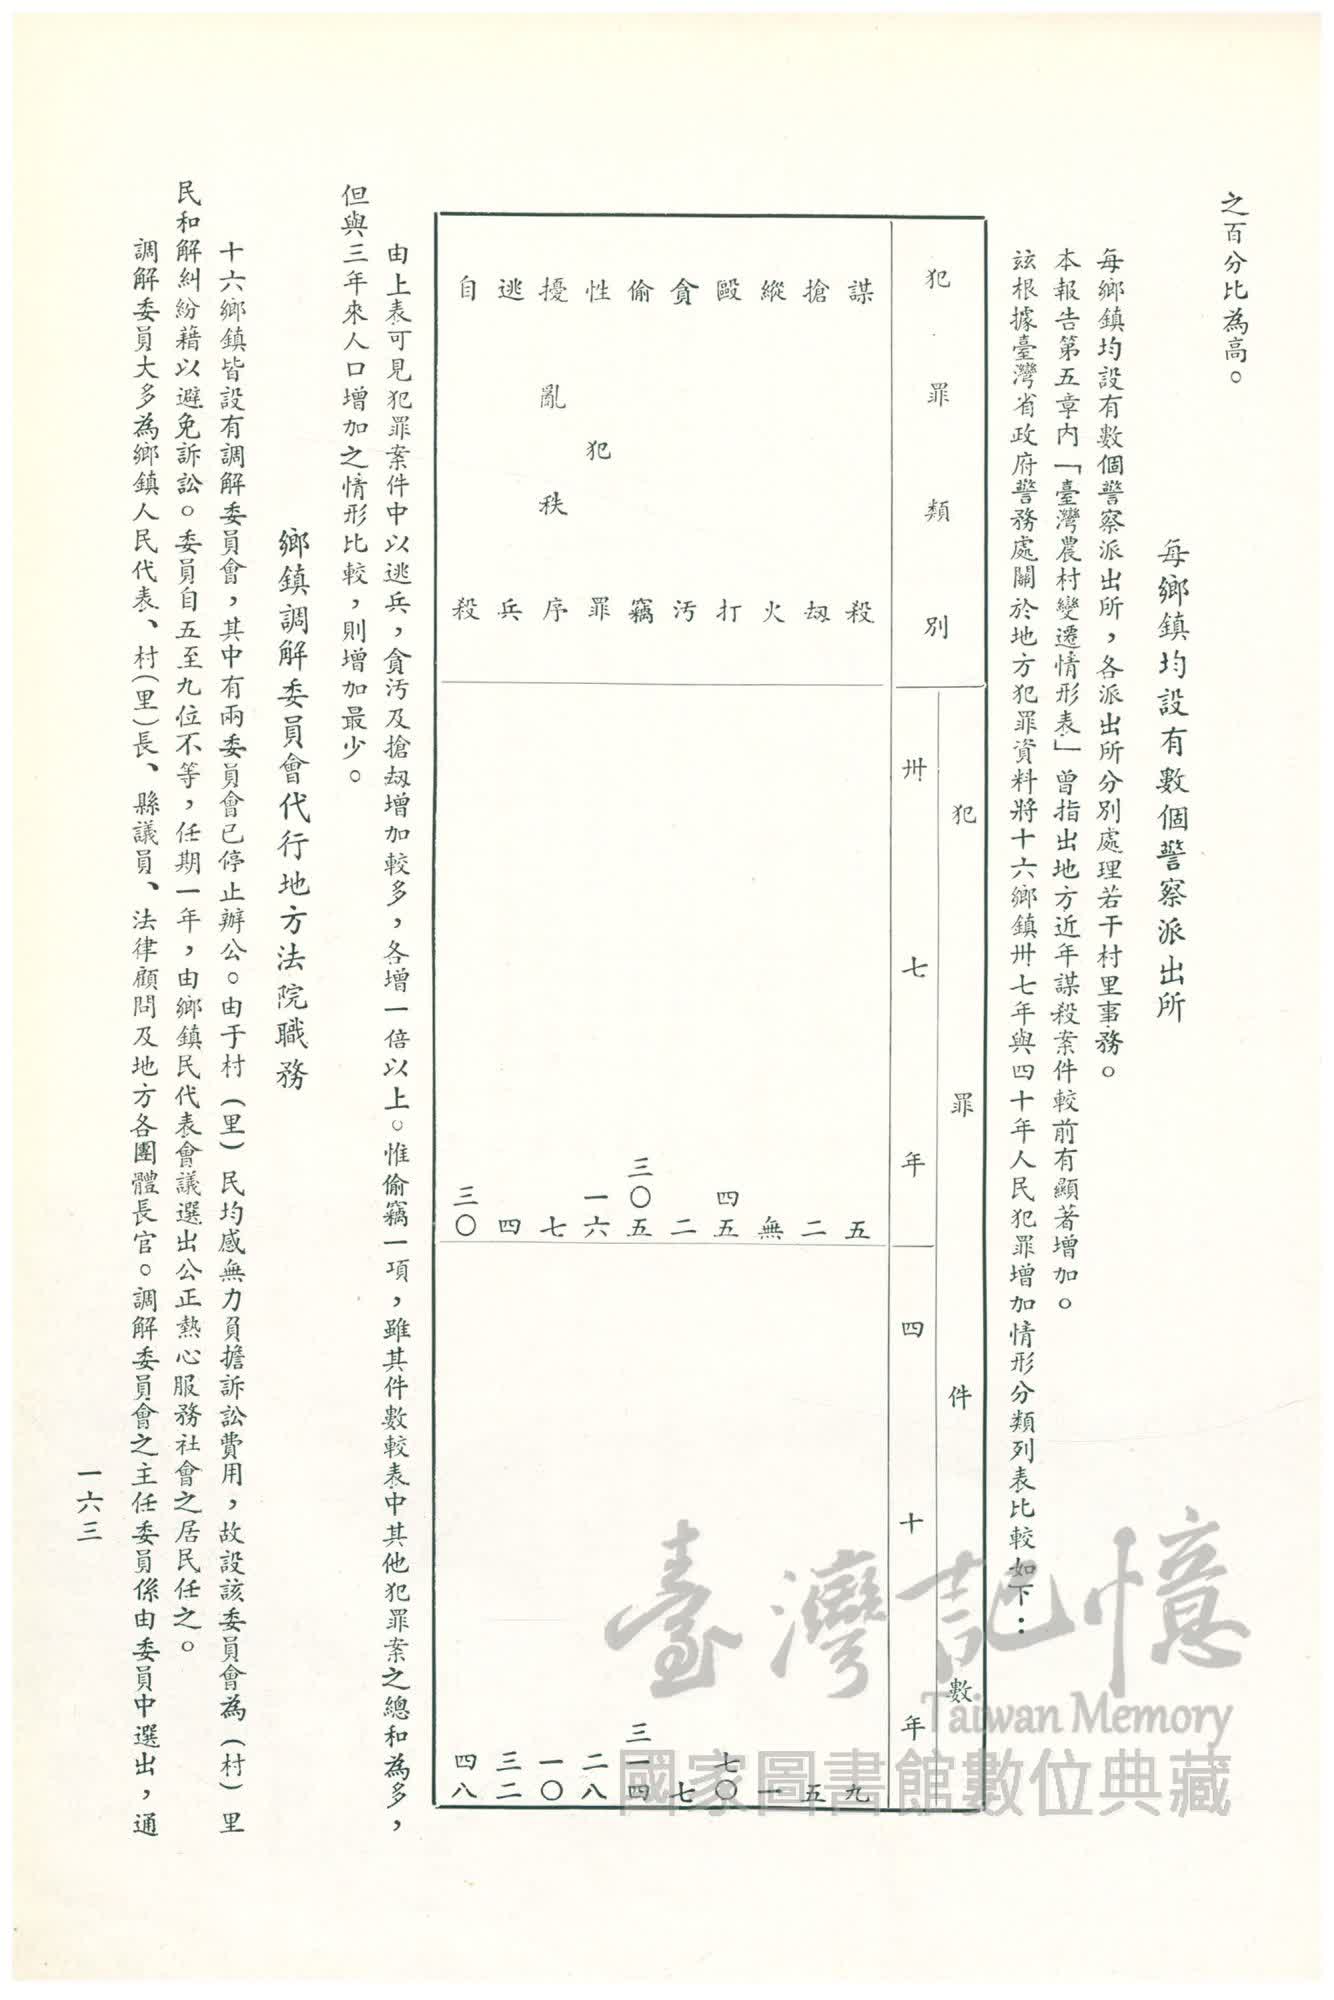 之百分比為高。
每鄉鎮均設有數個警察派出所
每鄉鎮均設有數個警察派出所，各派出所分別處理若干村里事務。
本報告第五章內「臺灣農村變遷情形表」曾指出地方近年謀殺案件較前有顯著增加。
茲根據臺灣省政府警務處關於地方犯罪資料將十六鄉鎮卅七年與四十年人民犯罪增加情形分類列表比較如下：
犯罪類別 犯罪件數
卅七年 四十年
謀殺 五 九
搶刼 二 五
縱火 無 一
毆打 四五 七〇
貪汚 二 七
偷竊 三〇五 三一四
性犯罪 一六 二八
擾亂秩序 七 一〇
逃兵 四 三二
自殺 三〇 四八
由上表可見犯罪案件中以逃兵，貪汚及搶刼增加較多，各增一倍以上。惟偷竊一項，雖其件數較表中其他犯罪案之總和為多，
但與三年來人口增加之情形比較，則增加最少。
鄉鎮調解委員會代行地方法院職務
十六鄉鎮皆設有調解委員會，其中有兩委員會已停止辦公。由于村（里）民均感無力負擔訴訟費用，故設該委員會為（村）里
民和解糾紛藉以避免訴訟。委員自五至九位不等，任期一年，由鄉鎮民代表會議選出公正熱心服務社會之居民任之。
調解委員大多為鄉鎮人民代表、村（里）長、縣議員、法律顧問及地方各團體長官。調解委員會之主任委員係由委員中選出，通
一六三
臺灣記憶
Taiwan Memory
國家圖書館數位典藏